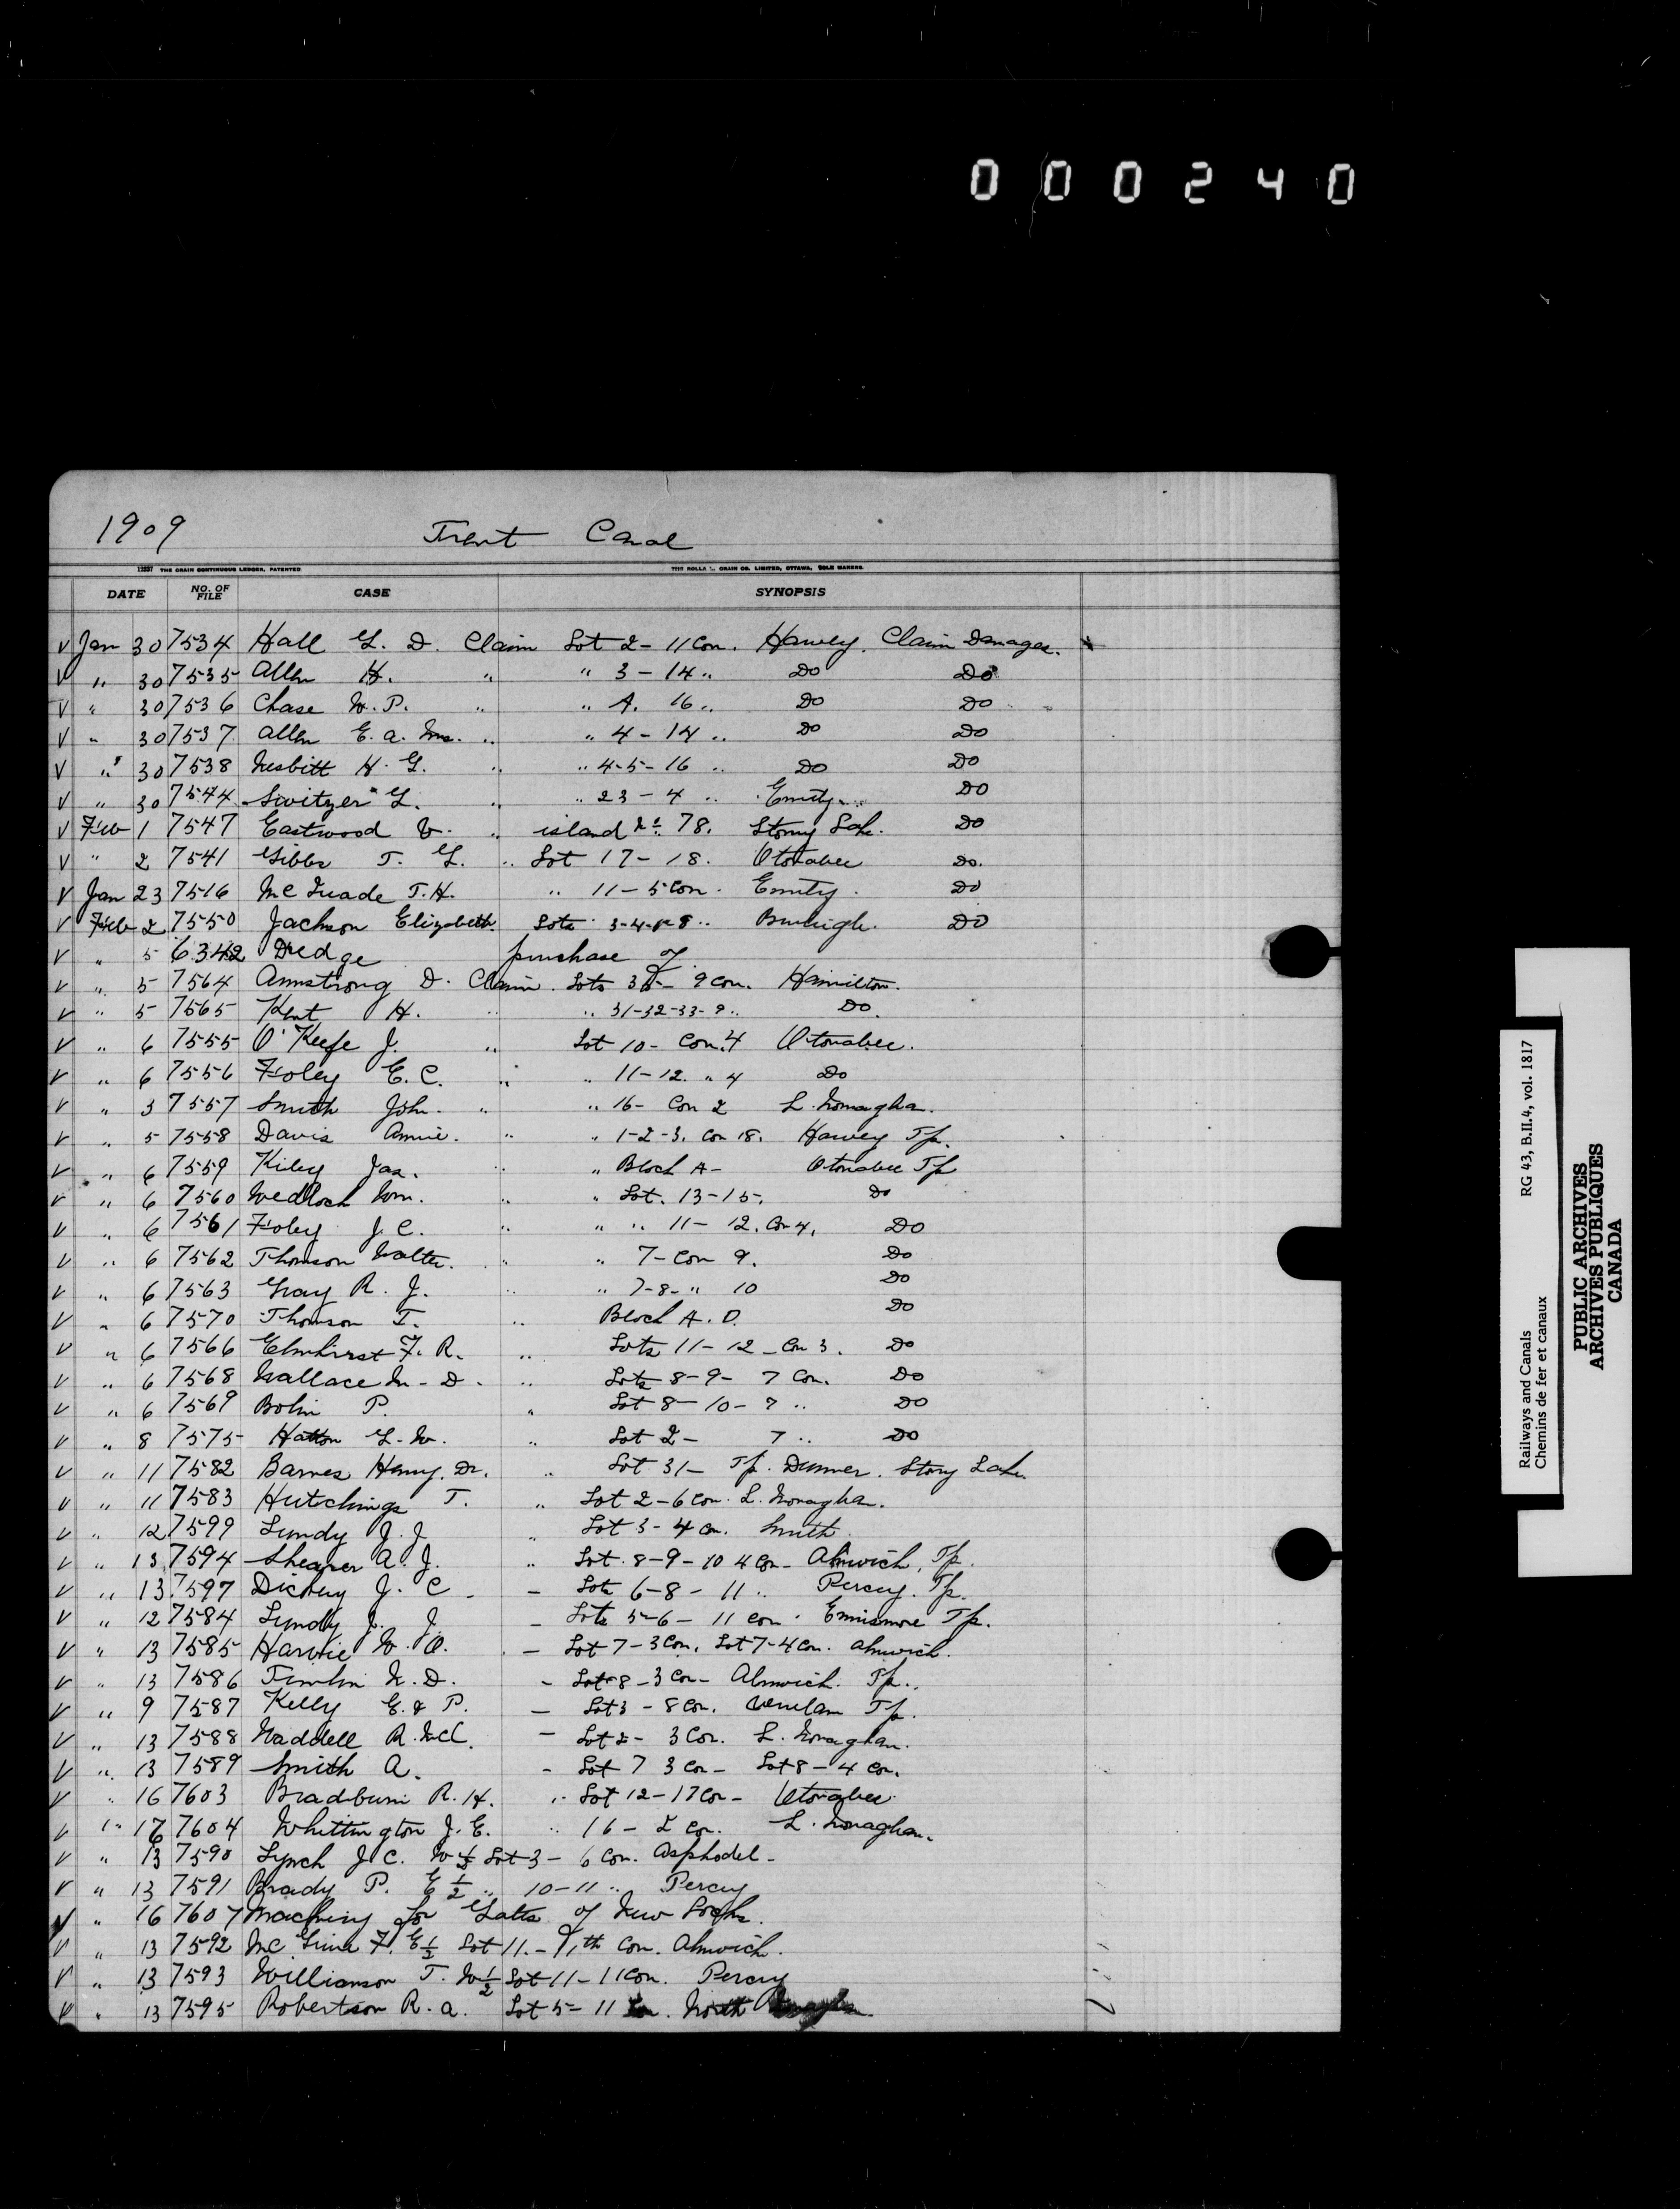 0 0 0 2 4 0
1909 Trent Canal
12237 THE GRAIN CONTINUOUS LEDGER, PATENTED THE ROLLA L. CRAIN CO. LIMITED, OTTAWA, SOLE MAKERS.
DATE NO. OF FILE CASE SYNOPSIS
V Jan 30 7534 Hall G. D. Claim Lot 2 - 11 Con. Harvey. Claim Damages.
V " 30 7535 Allen H. " " 3 - 14 " Do Do
V " 30 7536 Chase W. P. " " A. 16 " Do Do
V " 30 7537 Allen E. A. Mrs. " " 4 - 14 " Do Do
V " 30 7538 Nesbitt H. G. " " 4-5-16 " Do Do
V " 30 7544 Switzer G. " " 23 - 4 " Emily Do
V Feb 1 7547 Eastwood " island No. 78. Stony Lake. Do
V " 2 7541 Gibbs T. G. " Lot 17 - 18. Otonabee Do.
V Jan 23 7516 McQuade T. H. " 11 - 5 Con. Emily. Do
V Feb 2 7550 Jackson Elizabeth Lots 3-4- 8 " Burleigh. Do
V " 5 6342 Dredge purchase of
V " 5 7564 Armstrong D. Claim. Lots 9 Con. Hamilton.
V " 5 7565 Kent H. " " 31-32-33-9 " Do.
V " 6 7555 O'Keefe J. " Lot 10 - Con. 4 Otonabee.
V " 6 7556 Foley E. C. " " 11-12. " 4 Do
V " 3 7557 Smith John. " " 16 - Con 2 S. Monaghan.
V " 5 7558 Davis Annie. " " 1-2-3. Con 18. Harvey Tp.
V " 6 7559 Kiley Jas. " " Block A - Otonabee Tp
V " 6 7560 Wedlock Wm. " " Lot. 13-15. Do
V " 6 7561 Foley J. C. " " " 11 - 12. Con 4. Do
V " 6 7562 Thomson Walter. " " 7 - Con 9. Do
V " 6 7563 Gray R. J. " " 7-8- " 10 Do
V " 6 7570 Thomson T. " Block A. D. Do
V " 6 7566 Elmhirst F. R. " Lots 11 - 12 - Con 3. Do
V " 6 7568 Wallace W. D. " Lots 8-9- 7 Con. Do
V " 6 7569 Bolin P. " Lot 8 - 10 - 7 " Do
V " 8 7575 Hatton G. W. " Lot 2 - 7 " Do
V " 11 7582 Barnes Henry. Dr. " Lot 31 - Tp. Dummer. Stony Lake
V " 11 7583 Hutchings T. " Lot 2 - 6 Con. S. Monaghan.
V " 12 7599 Lundy J. J. " Lot 3 - 4 Con. Smith
V " 13 7594 Shearer A. J. " Lot. 8-9-10 4 Con - Alnwick, Tp.
V " 13 7597 Dickey J. C - Lots 6-8 - 11 " Percy. Tp.
V " 12 7584 Lundy J. J. - Lots 5-6 - 11 Con. Ennismore Tp.
V " 13 7585 Harvie W. O. - Lot 7 - 3 Con. Lot 7 - 4 Con. Alnwick.
V " 13 7586 Timlin D. - Lot 8 - 3 Con - Alnwick. Tp.
V " 9 7587 Kelly E. & P. - Lot 3 - 8 Con. Verulam Tp.
V " 13 7588 Waddell R. McC. - Lot 2 - 3 Con. S. Monaghan.
V " 13 7589 Smith A. - Lot 7 3 Con - Lot 8 - 4 Con.
V " 16 7603 Bradburn R. H. " Lot 12 - 17 Con - Otonabee
V " 7604 Whittington J. E. " 16 - 2 Con. S. Monaghan.
V " 13 7590 Lynch J. C. W ½ Lot 3 - 6 Con. Asphodel -
V " 13 7591 Brady P. E ½ " 10 - 11 " Percy
V " 16 7607 Machinery for Gates of New Locks.
V " 13 7592 F. E ½ Lot 11. - 11th Con. Alnwick.
V " 13 7593 Williamson T. W ½ Lot 11 - 11 Con. Percy
V " 13 7595 Robertson R. A. Lot 5 - 11 Con. North
Railways and Canals RG 43, B.II.4, vol. 1817
Chemins de fer et canaux
PUBLIC ARCHIVES
ARCHIVES PUBLIQUES
CANADA